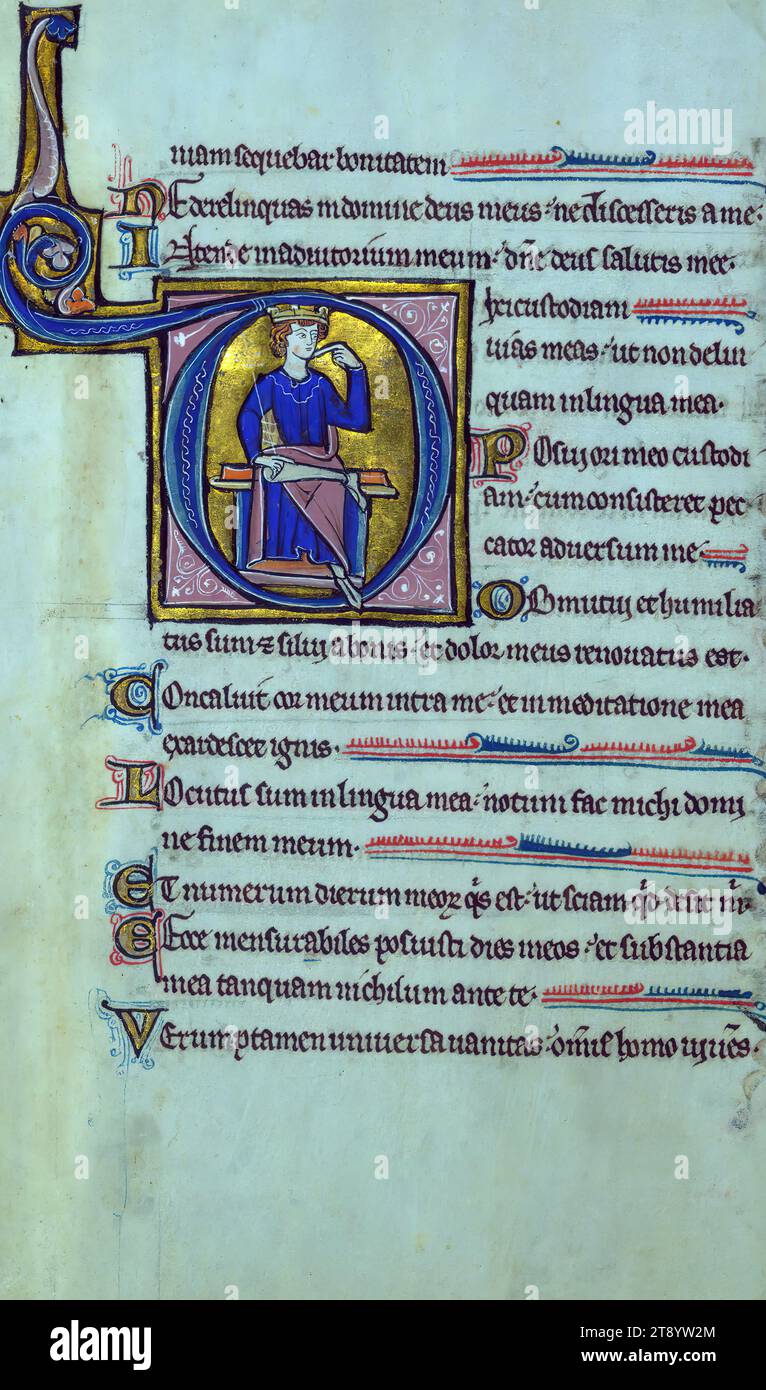 niam sequebar bonitatem
NE derelinquas m domine deus meus · ne discesseris a me ·
INtende in adiutorium meum · dñe deus salutis mee ·
D
ixi custodiam
uias meas · ut non delin
quam in lingua mea ·
POsui ori meo custodi
am · cum consisteret pec
cator aduersum me ·
OBmutui et humilia
tus sum & silui a bonis · et dolor meus renouatus est ·
COncaluit cor meum intra me · et in meditatione mea
exardescet ignis ·
LOcutus sum in lingua mea · notum fac michi domi
ne finem meum ·
ET numerum dierum meoꝝ q̇s est · ut sciam qͦd desit m ·
EEcce mensurabiles posuisti dies meos · et substantia
mea tanquam nichilum ante te ·
VErumptamen uniuersa uanitas · om̄is homo uiuēs ·
alamy
a
alamy
Image ID: 2T8YW2M
www.alamy.com